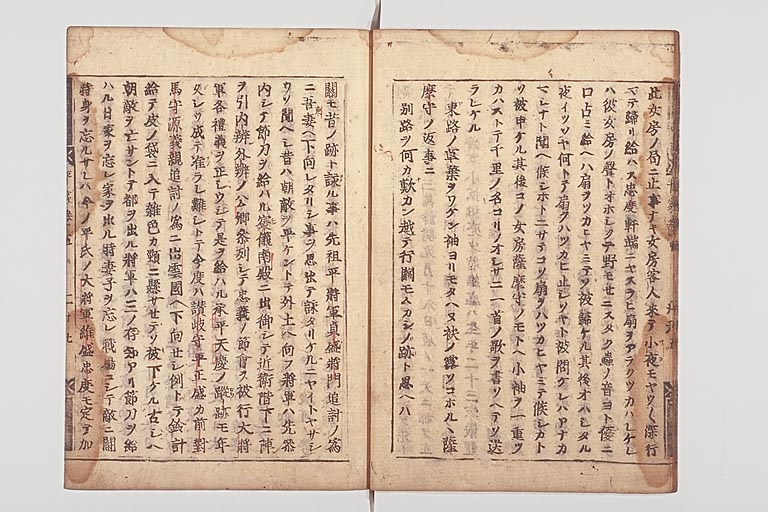 此女房ノ局ニ止事ナキ女房客人来テ小夜モヤウ〱深行
マテ歸リ給ハス忠度軒端ニヤスラヒ扇ヲアラクツカハレケレ
ハ彼女房ノ聲トオホシクテ野モセニスタク蟲ノ音ヨト優ニ
口占ミ給ヘハ扇ヲツカヒヤミテソ被歸ケル其後オハシタル
夜イツソヤ何トテ扇ヲハツカヒ止シソヤト被問ケレハアナカ
マシナト聞ヘ候シホトニサテコソ扇ヲハツカヒヤミテ候シカト
ソ被申ケル其後コノ女房薩摩守ノモトヘ小袖ヲ一重ツ
カハストテ千里ノ名コリノオシサニ一首ノ歌ヲ書ソヘテソ送
ラレケル
東路ノ草葉ヲワケン袖ヨリモタヘヌ袂ノ露ソコホルヽ薩
摩守ノ返事ニ
別路ヲ何カ歎カン越テ行關モムカシノ跡ト思ヘハ
關モ昔ノ跡ト詠ル事ハ先祖平將軍貞盛將門追討ノ爲
ニ吾妻ヘ下向シタリシ事ヲ思出テ詠タリケルニヤイトヤサシ
ウソ聞ヘシ昔ハ朝敵ヲ平ケントテ外土ヘ向フ將軍ハ先參
内シテ節刀ヲ給ハル宸儀南殿ニ出御シテ近衛階下ニ陣
ヲ引内辨外辨ノ公卿參列シテ中儀ノ節會ヲ被行大將
軍各禮義ヲ正シウシテ是ヲ給ハル承平天慶ノ蹤跡モ年
久シウ成テ准ラヘ難シトテ今度ハ讃岐守平正盛カ前對
馬守源義親追討ノ爲ニ出雲國ヘ下向せシ例トテ鈴計
給テ皮ノ袋ニ入テ雜色カ頸ニ懸サせテソ被下ケル古シヘ
朝敵ヲ亡サントテ都ヲ出ル將軍ハ三ノ存知アリ節刀ヲ給
ハル日家ヲ忘レ家ヲ出ル時妻子ヲ忘レ戰場ニシテ敵ニ鬪
時身ヲ忘ルサレハ今ノ平氏ノ大將軍維盛忠度モ定テ加